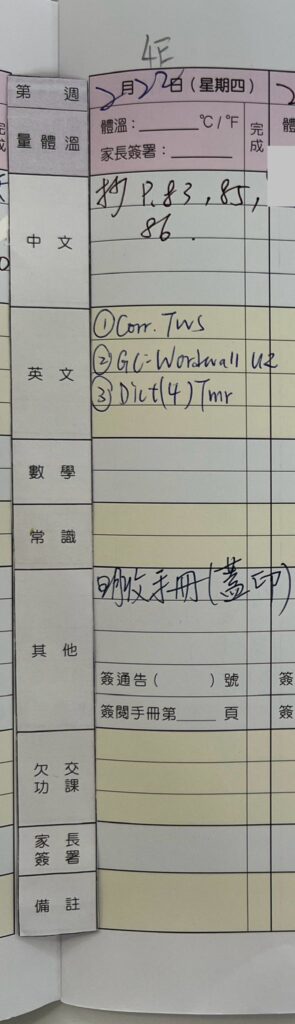 4E
第 週
2月22日(星期四)
量體溫
體溫：______°C / °F
家長簽署：______
完成
中文
抄 P.83, 85,
86.
英文
① Corr. TWS
② GC: Wordwall U2
③ Dict(4) Tmr
數學
常識
其他
明收手冊(蓋印)
簽通告( )號
簽閱手冊第____頁
欠交功課
家長簽署
備註